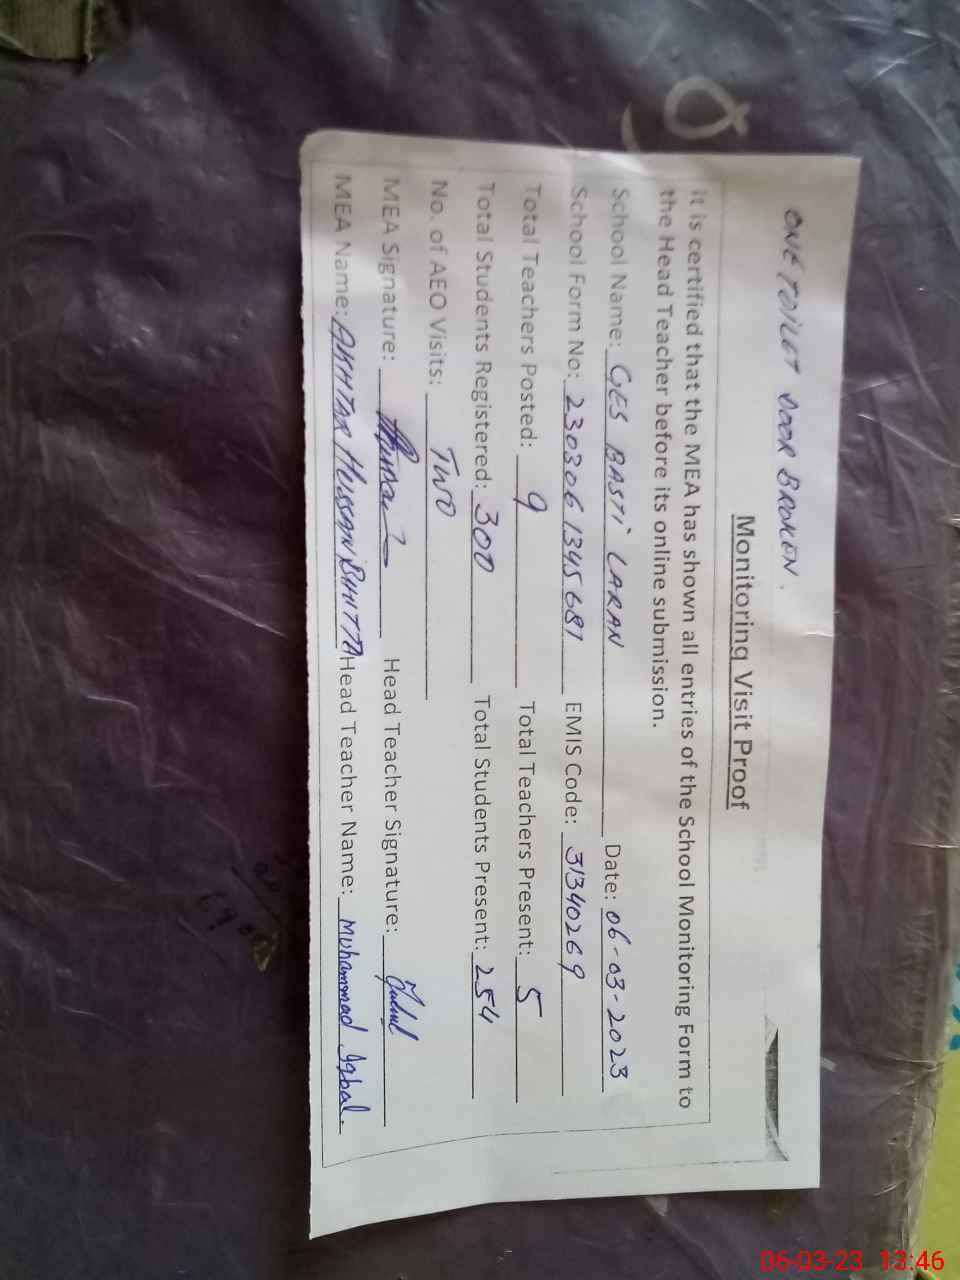 ONE TOILET DOOR BROKEN.
Monitoring Visit Proof
It is certified that the MEA has shown all entries of the School Monitoring Form to
the Head Teacher before its online submission.
School Name: GES BASTI LARAN Date: 06-03-2023
School Form No: 2303061345681 EMIS Code: 31340269
Total Teachers Posted: 9 Total Teachers Present: 5
Total Students Registered: 300 Total Students Present: 254
No. of AEO Visits: Two
MEA Signature: Head Teacher Signature:
MEA Name: AKHTAR HUSSAN BHTTA Head Teacher Name: Muhammad Iqbal.
06-03-23 13:46